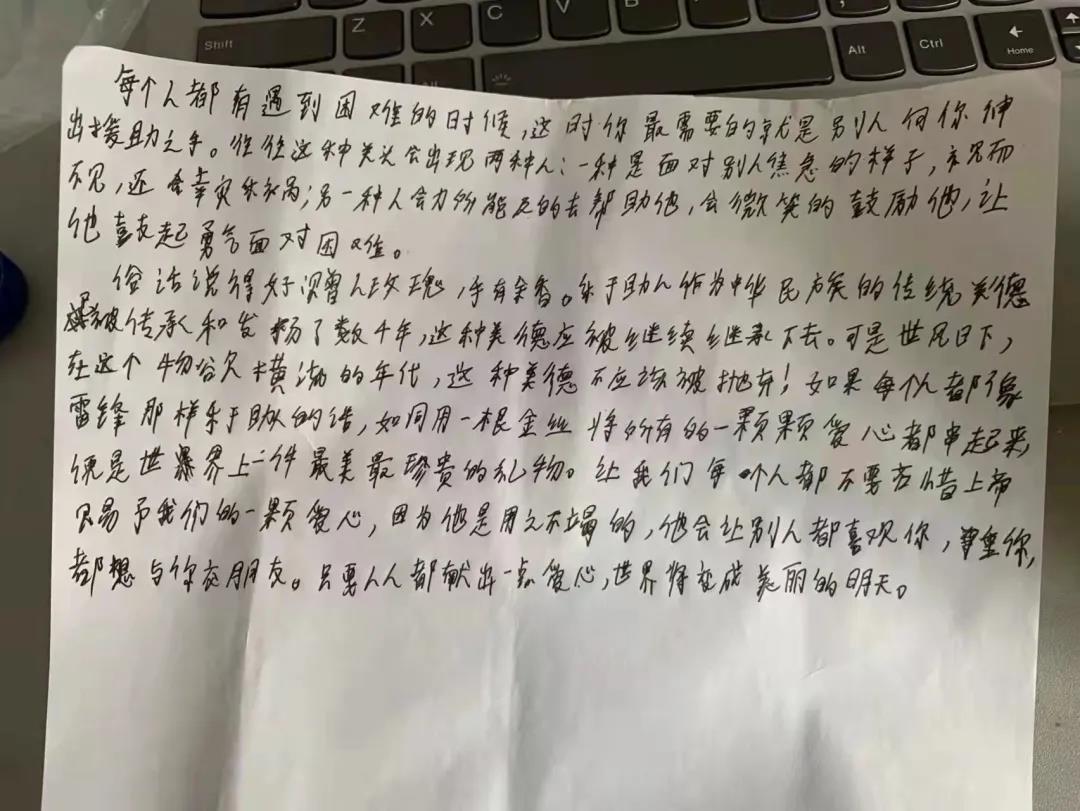 Shift
Z
X
C
V
B
Alt
Ctrl
Home
每个人都有遇到困难的时候,这时你最需要的就是别人向你伸
出援助之手。往往这种关头会出现两种人:一种是面对别人焦急的样子,视而
不见,还会幸灾乐祸;另一种人会力所能及的去帮助他,会微笑的鼓励他,让
他鼓起勇气面对困难。
俗话说得好予人玫瑰,手有余香。乐于助人作为中华民族的传统美德
被传承和发扬了数千年,这种美德应被继续继承下去。可是世风日下,
在这个物欲横流的年代,这种美德不应该被抛弃!如果每个人都像
雷锋那样乐于助人的话,如同用一根金丝将所有的一颗颗爱心都串起来,
便是世界上一件最美最珍贵的礼物。让我们每个人都不要吝惜上帝
赐予我们的一颗爱心,因为他是用之不竭的,他会让别人都喜欢你,尊重你,
都想与你交朋友。只要人人都献出一点爱心,世界将变成美丽的明天。